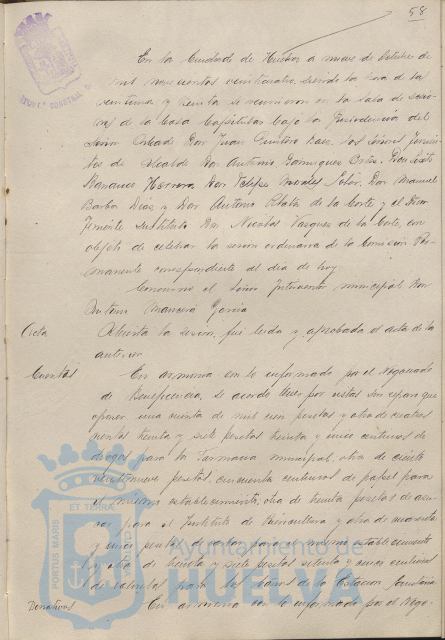 58
En la Ciudad de Huelva a nueve de Octubre de
mil novecientos veinticuatro, siendo la hora de la
veintiuna y treinta se reunieron en la sala de sesio-
nes de la Casa Capitular bajo la Presidencia del
Señor Alcalde Don Juan Quintero Baez los Señores Tenien-
tes de Alcalde Don Antonio Dominguez Don
Herrera Don Felipe Morales Don Manuel
Barba Diaz y Don Antonio de la Corte y el Señor
Teniente Sustituto Don Nicolas Vazquez de la Corte, con
objeto de celebrar la sesion ordinaria de la Comision Per-
manente correspondiente al dia de hoy
Concurrio el Señor Interventor municipal Don
Antonio Garcia
Acta Abierta la sesion, fué leida y aprobada el acta de la
anterior
Cuentas En armonia con lo informado por el Negociado
de Beneficencia, se acordó tener por vistas sin reparo que
oponer una cuenta de mil cien pesetas y otra de cuatro
cientas treinta y siete pesetas treinta y cinco centimos de
drogas para la Farmacia municipal, otra de ciento
veintinueve pesetas cincuenta centimos de papel para
el mismo establecimiento, otra de treinta pesetas de
para el Instituto de y otra de cuarenta
y cinco pesetas de para el mismo establecimiento
y otra de treinta y siete pesetas setenta y cinco centimos
de para los baños de la Estacion Sanitaria
Donativos En armonia con lo informado por el Nego-
PORTUS MARIS ET TERRÆ CUSTODIA
Ayuntamiento de
HUELVA